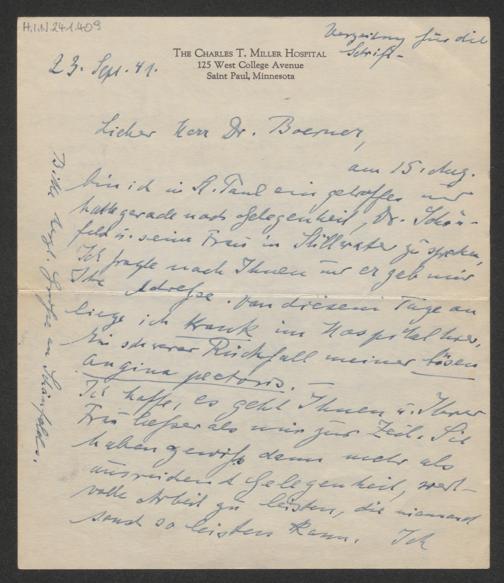 H.I.N. 241.409
Verzeihung für die
Schrift -
THE CHARLES T. MILLER HOSPITAL
125 West College Avenue
Saint Paul, Minnesota
23. Sept. 41.
Lieber Herr Dr. Boerner,
am 15. Aug.
bin ich in St. Paul eingetroffen und
hatte gerade noch Gelegenheit, Dr. Schön-
feld u. seine Frau in Stillwater zu sprechen,
Ich fragte nach Ihnen und er gab mir
Ihre Adresse. Von diesem Tage an
liege ich krank im Hospital hier,
ein schwerer Rückfall meiner bösen
Angina pectoris. —
Ich hoffe, es geht Ihnen u. Ihrer
Frau besser als mir zur Zeit. Sie
haben gewiß denn mehr als
ausreichend Gelegenheit, wert-
volle Arbeit zu leisten, die niemand
sonst so leisten kann. Ich
Bitte Grüße an Schönfelds.